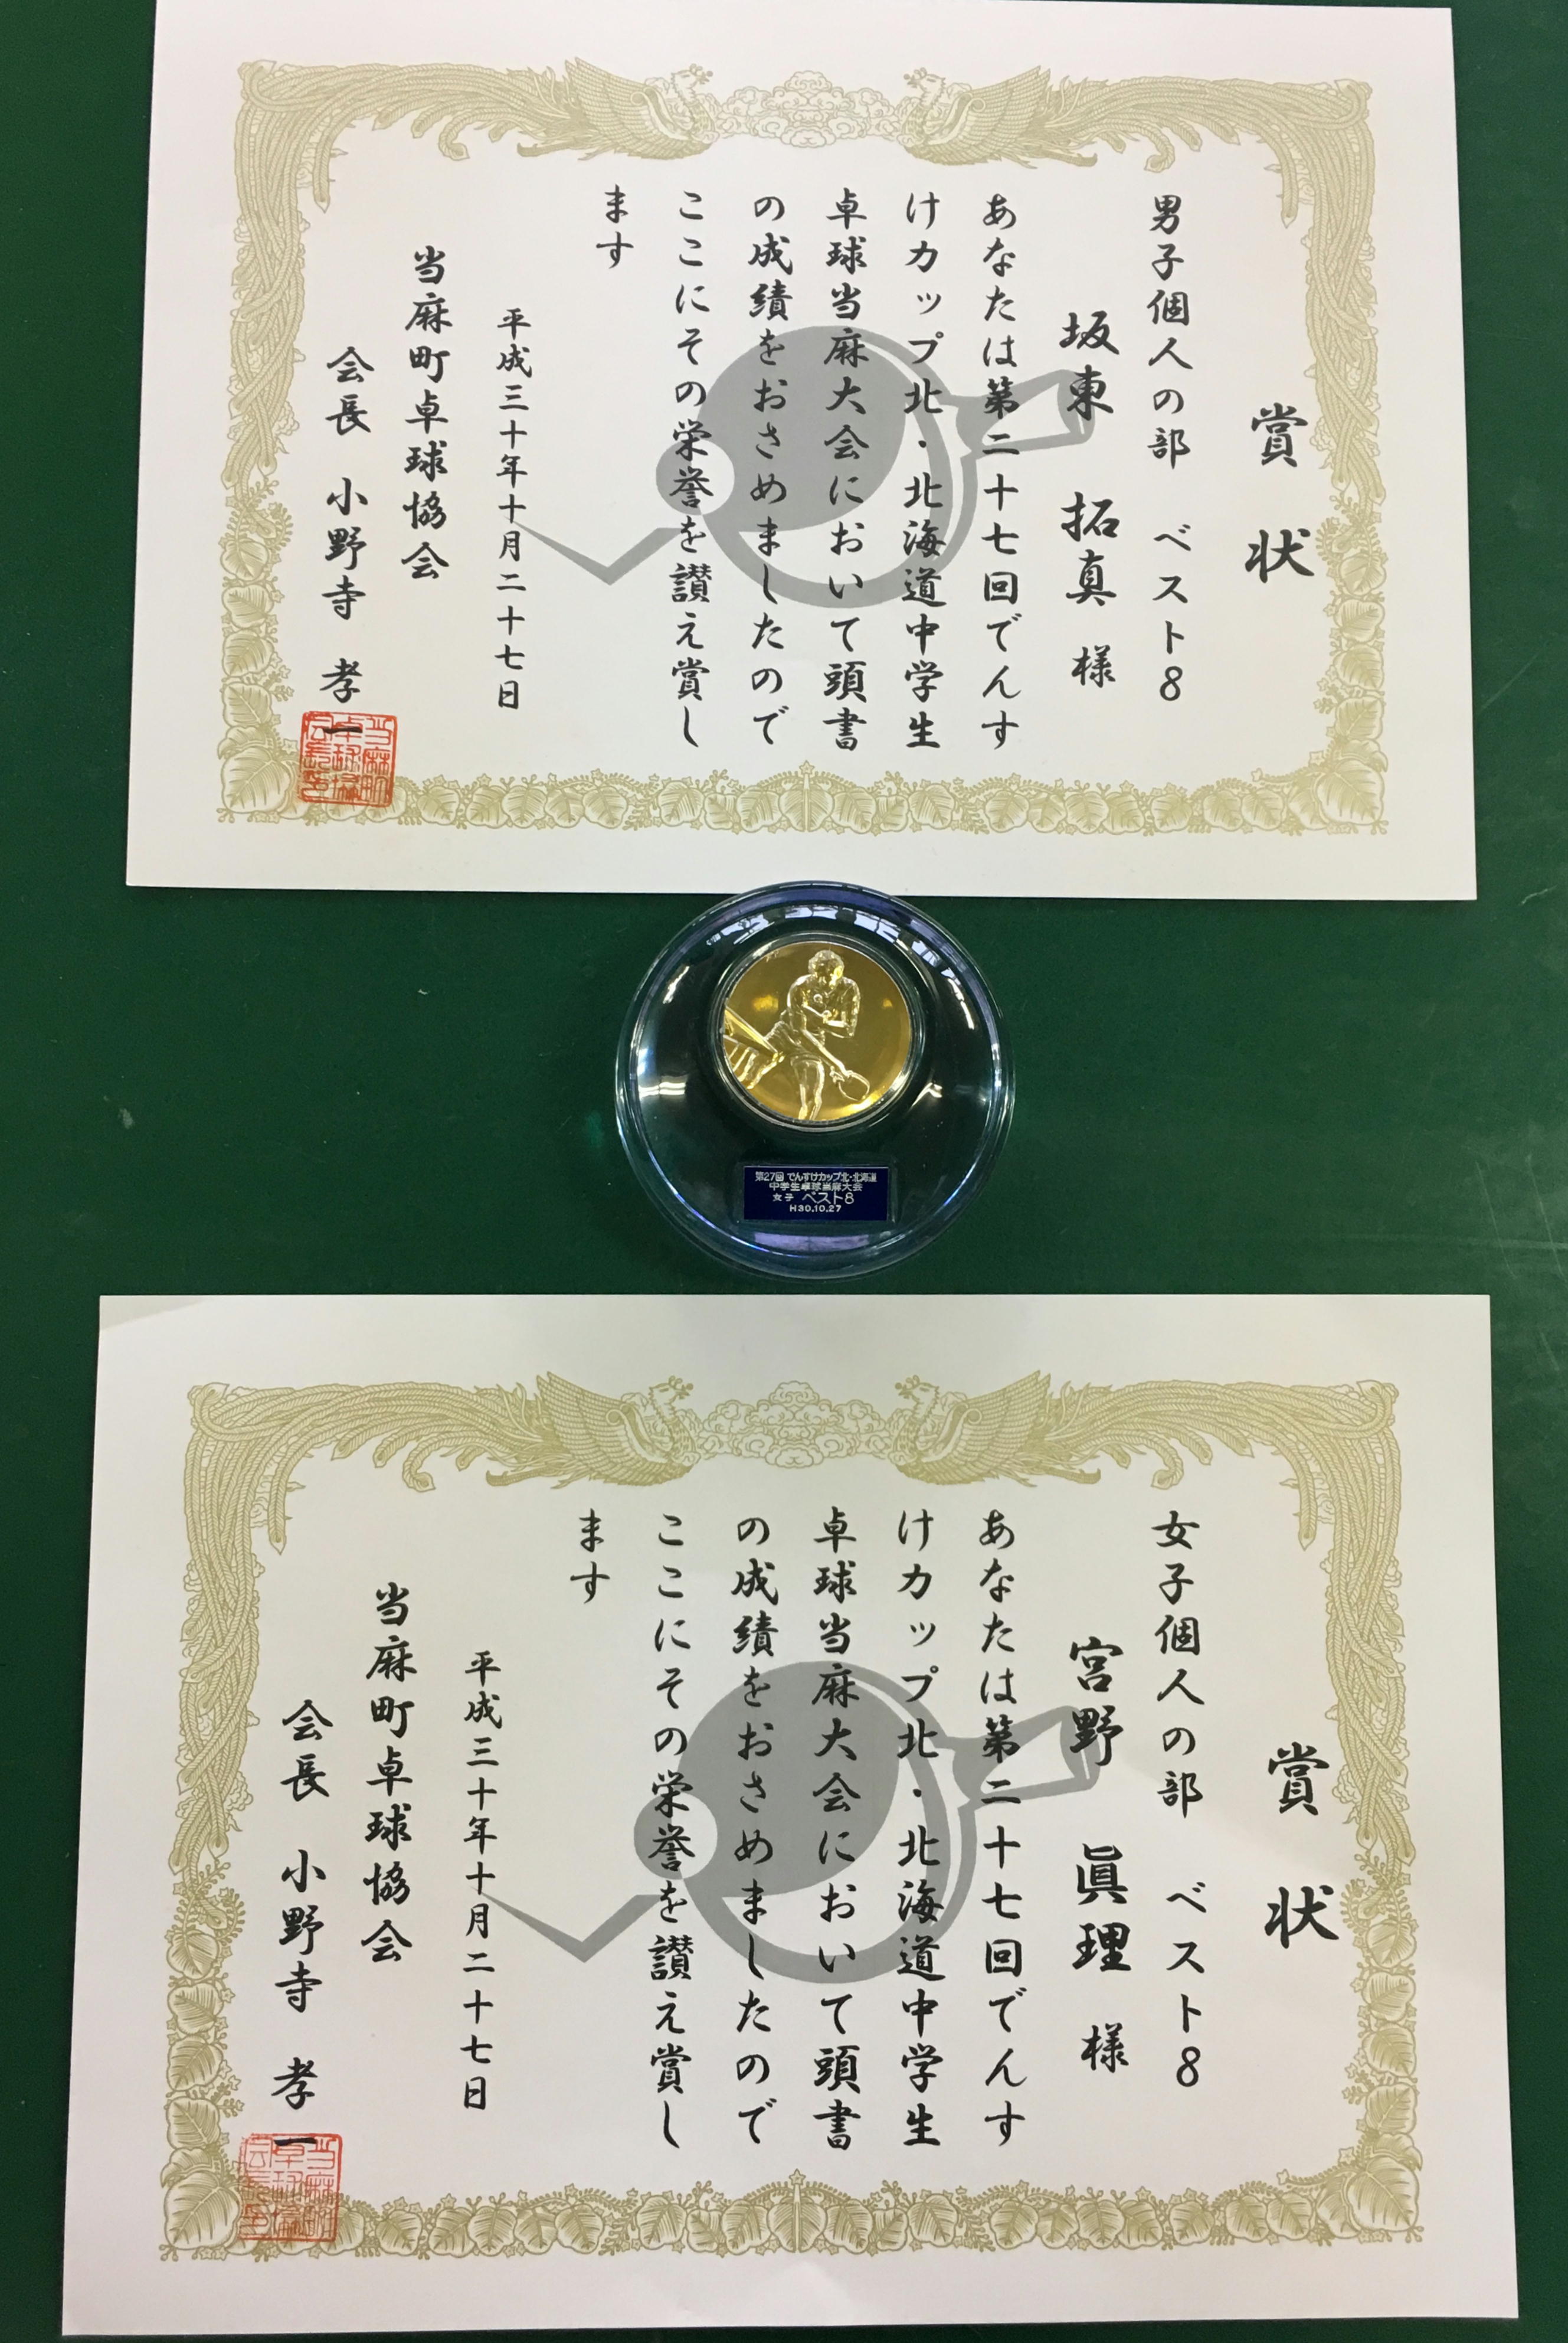 賞状
男子個人の部 ベスト8
坂東 拓真 様
あなたは第二十七回でんす
けカップ北・北海道中学生
卓球当麻大会において頭書
の成績をおさめましたので
ここにその栄誉を讃え賞し
ます
平成三十年十月二十七日
当麻町卓球協会
会長 小野寺 孝一
当麻町
卓球協
会長之印
第27回 でんすけカップ北・北海道
中学生卓球当麻大会
女子 ベスト8
H30.10.27
賞状
女子個人の部 ベスト8
宮野 眞理 様
あなたは第二十七回でんす
けカップ北・北海道中学生
卓球当麻大会において頭書
の成績をおさめましたので
ここにその栄誉を讃え賞し
ます
平成三十年十月二十七日
当麻町卓球協会
会長 小野寺 孝一
当麻町
卓球協
会長之印